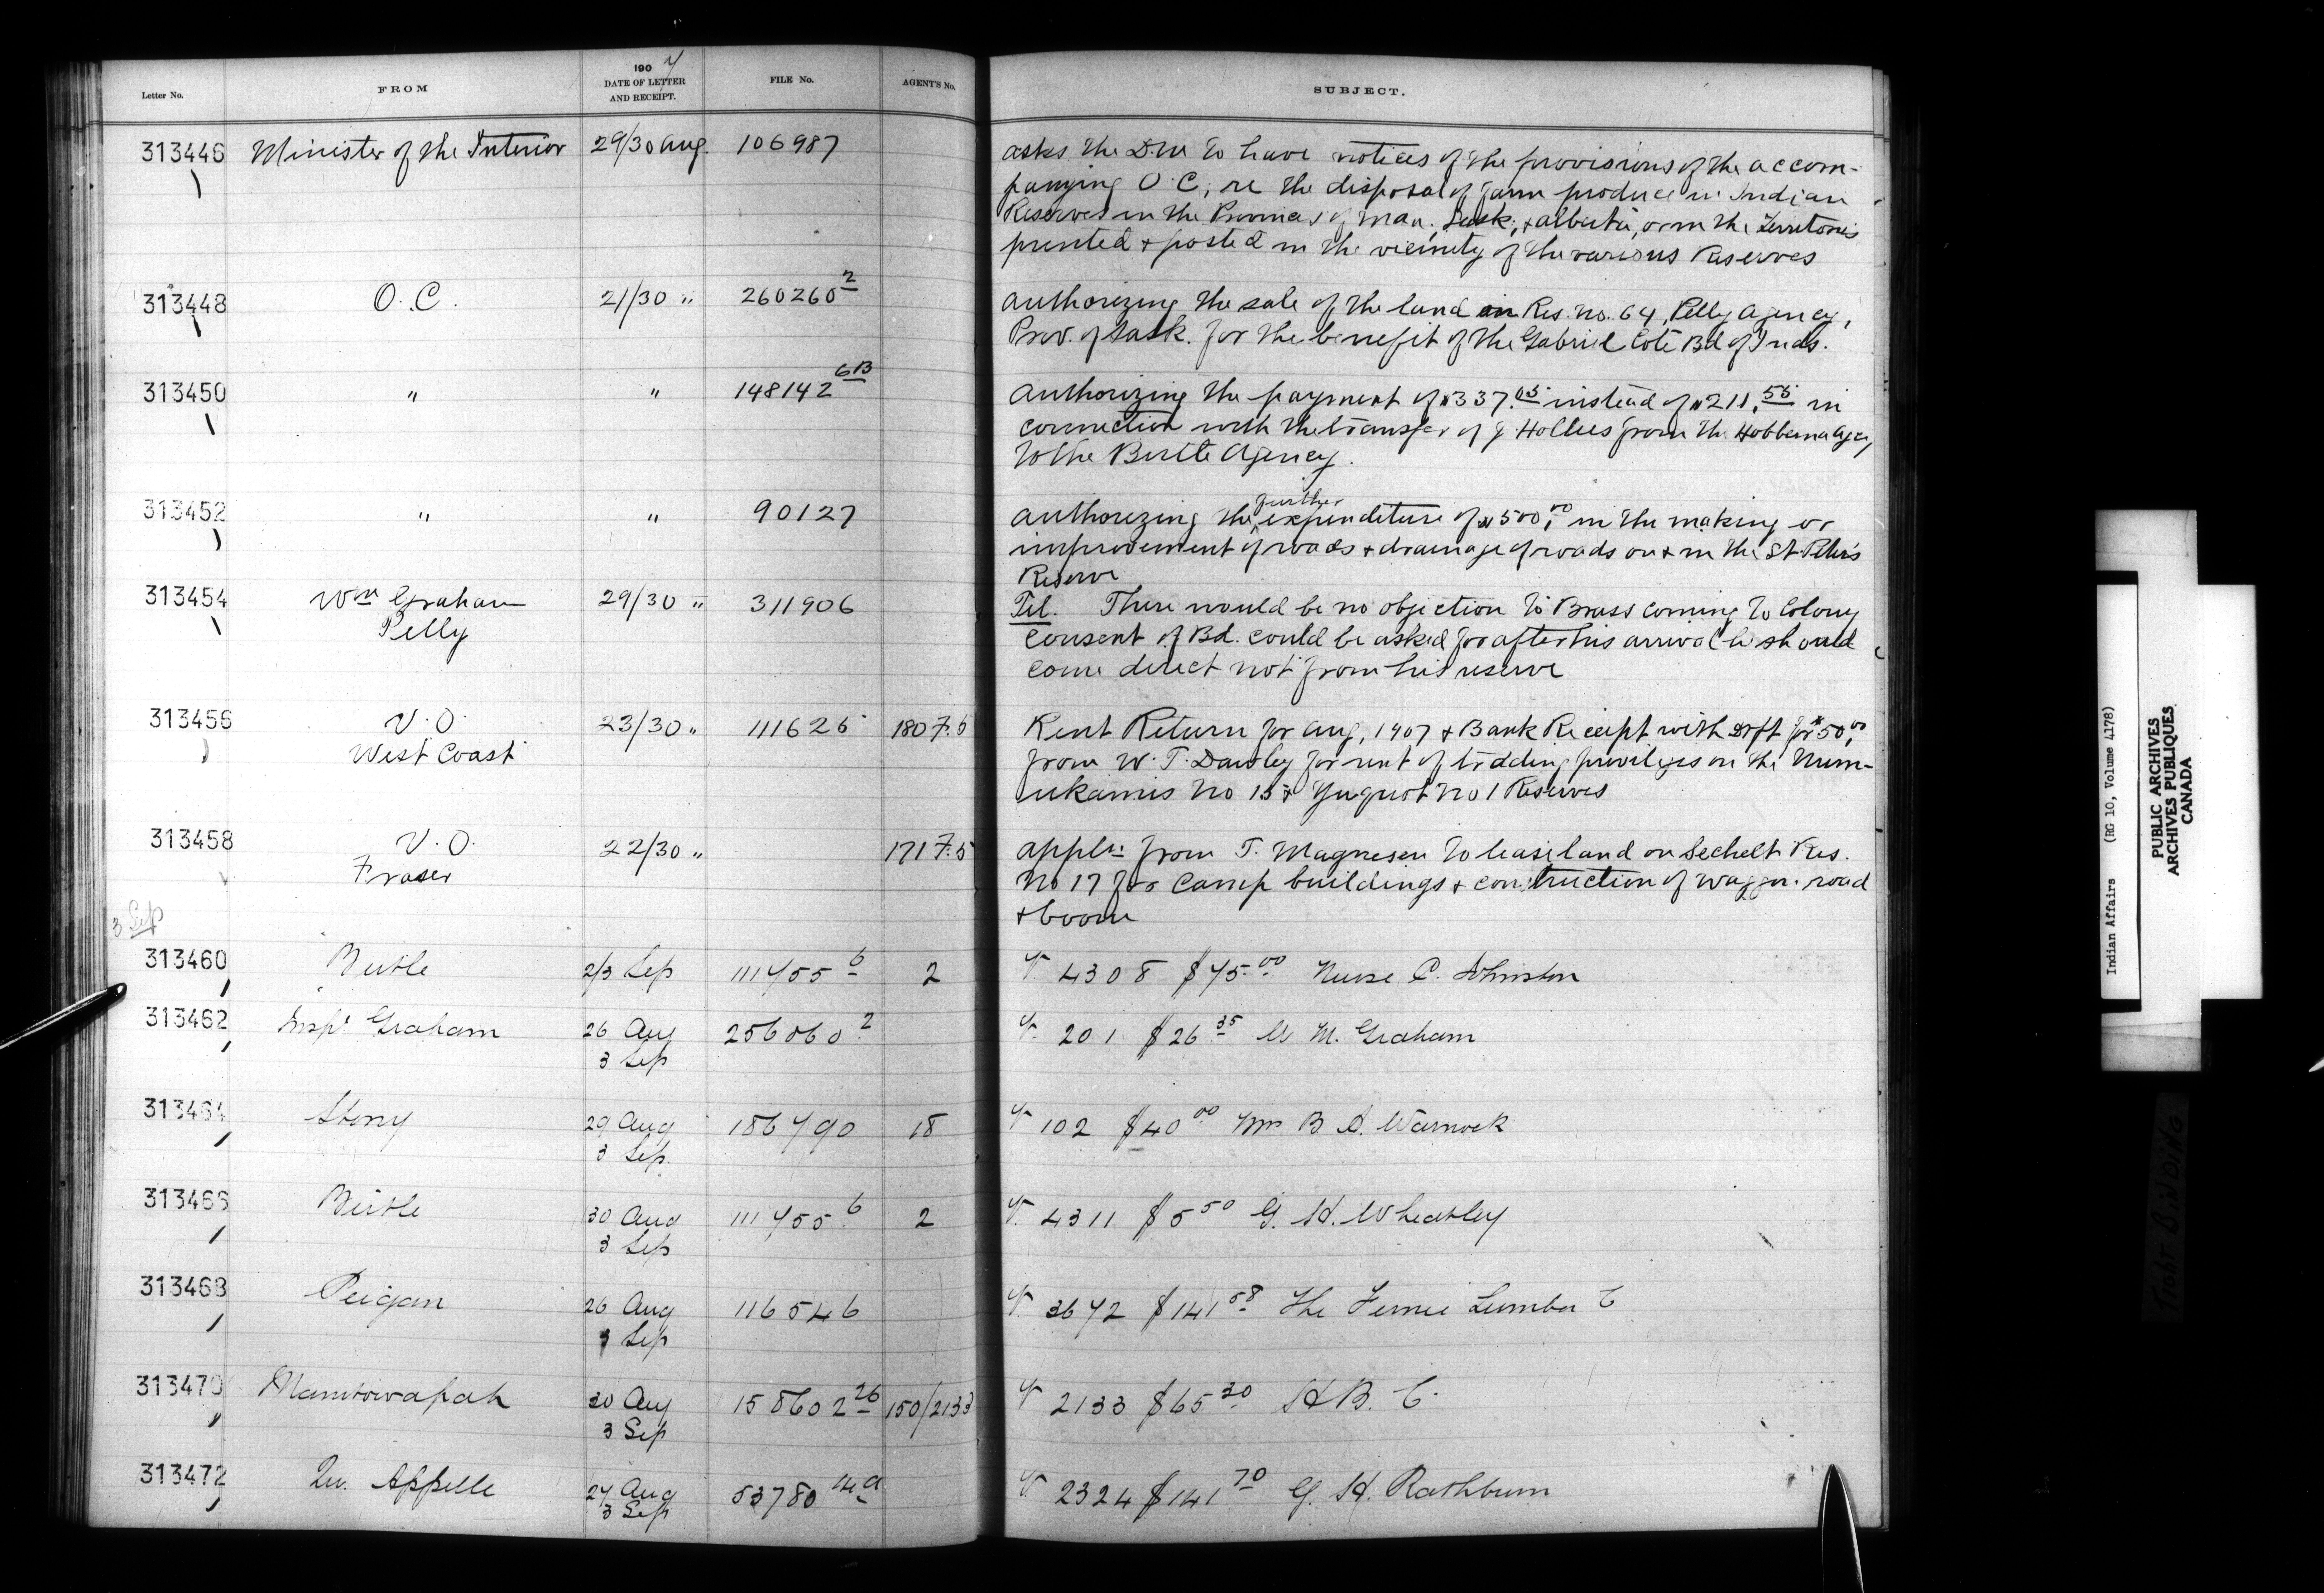 Letter No. FROM 1907 DATE OF LETTER AND RECEIPT. FILE No. AGENT'S No. SUBJECT.
313446 Minister of the Interior 29/30 Aug. 106987
asks the D.M to have notices of the provisions of the accom-
panying O.C. re the disposal of farm produce in Indian
Reserves in the Provinces of Man., Sask., & Alberta, or in the Territories
printed & posted in the vicinity of the various Reserves
313448 O.C. 21/30 " 260260 2
Authorizing the sale of the land in Res. No. 64, Pelly Agency,
Prov. of Sask. for the benefit of the Gabriel Coté Bd of Inds.
313450 " " 148142 6B
Authorizing the payment of $337.05 instead of $211.55 in
connection with the transfer of J. Hollies from the Hobbema Agcy
to the Birtle Agency.
313452 " " 90127
Authorizing the further expenditure of $500.00 in the making or
improvement of roads & drainage of roads on & in the St. Peter's
Reserve
313454 Wm Graham 29/30 " 311906
Pelly
Tel. There would be no objection to Brass coming to Colony
consent of Bd. could be asked for after his arrival he should
come direct not from his reserve
313456 V.O. 23/30 " 111626 180 7.5
West Coast
Rent Return for Aug, 1907 & Bank Receipt with Dft for $50.00
from W. T. Dawley for rent of trading privileges on the Num-
ukamis No 1 & Yuquot No 1 Reserves
313458 V.O. 22/30 " 171 7.5
Fraser
Appln from T. Magnesen to lease land on Sechelt Res.
No 17 for Camp buildings & construction of waggon road
& boom
3 Sep
313460 Birtle 2/3 Sep 111455 6 2
V 4308 $75.00 Nurse C. Johnston
313462 Insp. Graham 26 Aug 3 Sep 256060 2
V. 201 $26 35 W M. Graham
313464 Stony 29 Aug 3 Sep. 186790 18
V 102 $40 00 Mrs B A. Warnock
313466 Birtle 30 Aug 3 Sep 111455 6 2
V. 4311 $5 50 G. H. Wheatley
313468 Peigan 26 Aug Sep 116546
V. 3672 $141 58 The Fernie Lumber C
313470 Manitowapah 30 Aug 3 Sep 158602 26 150/2133
V 2133 $65 30 H B. C.
313472 Qu. Appelle 27 Aug 3 Sep 53780 14a
V 2324 $141 70 G. H. Rathburn
Indian Affairs (RG 10, Volume 4178)
PUBLIC ARCHIVES
ARCHIVES PUBLIQUES
CANADA
TIGHT BINDING